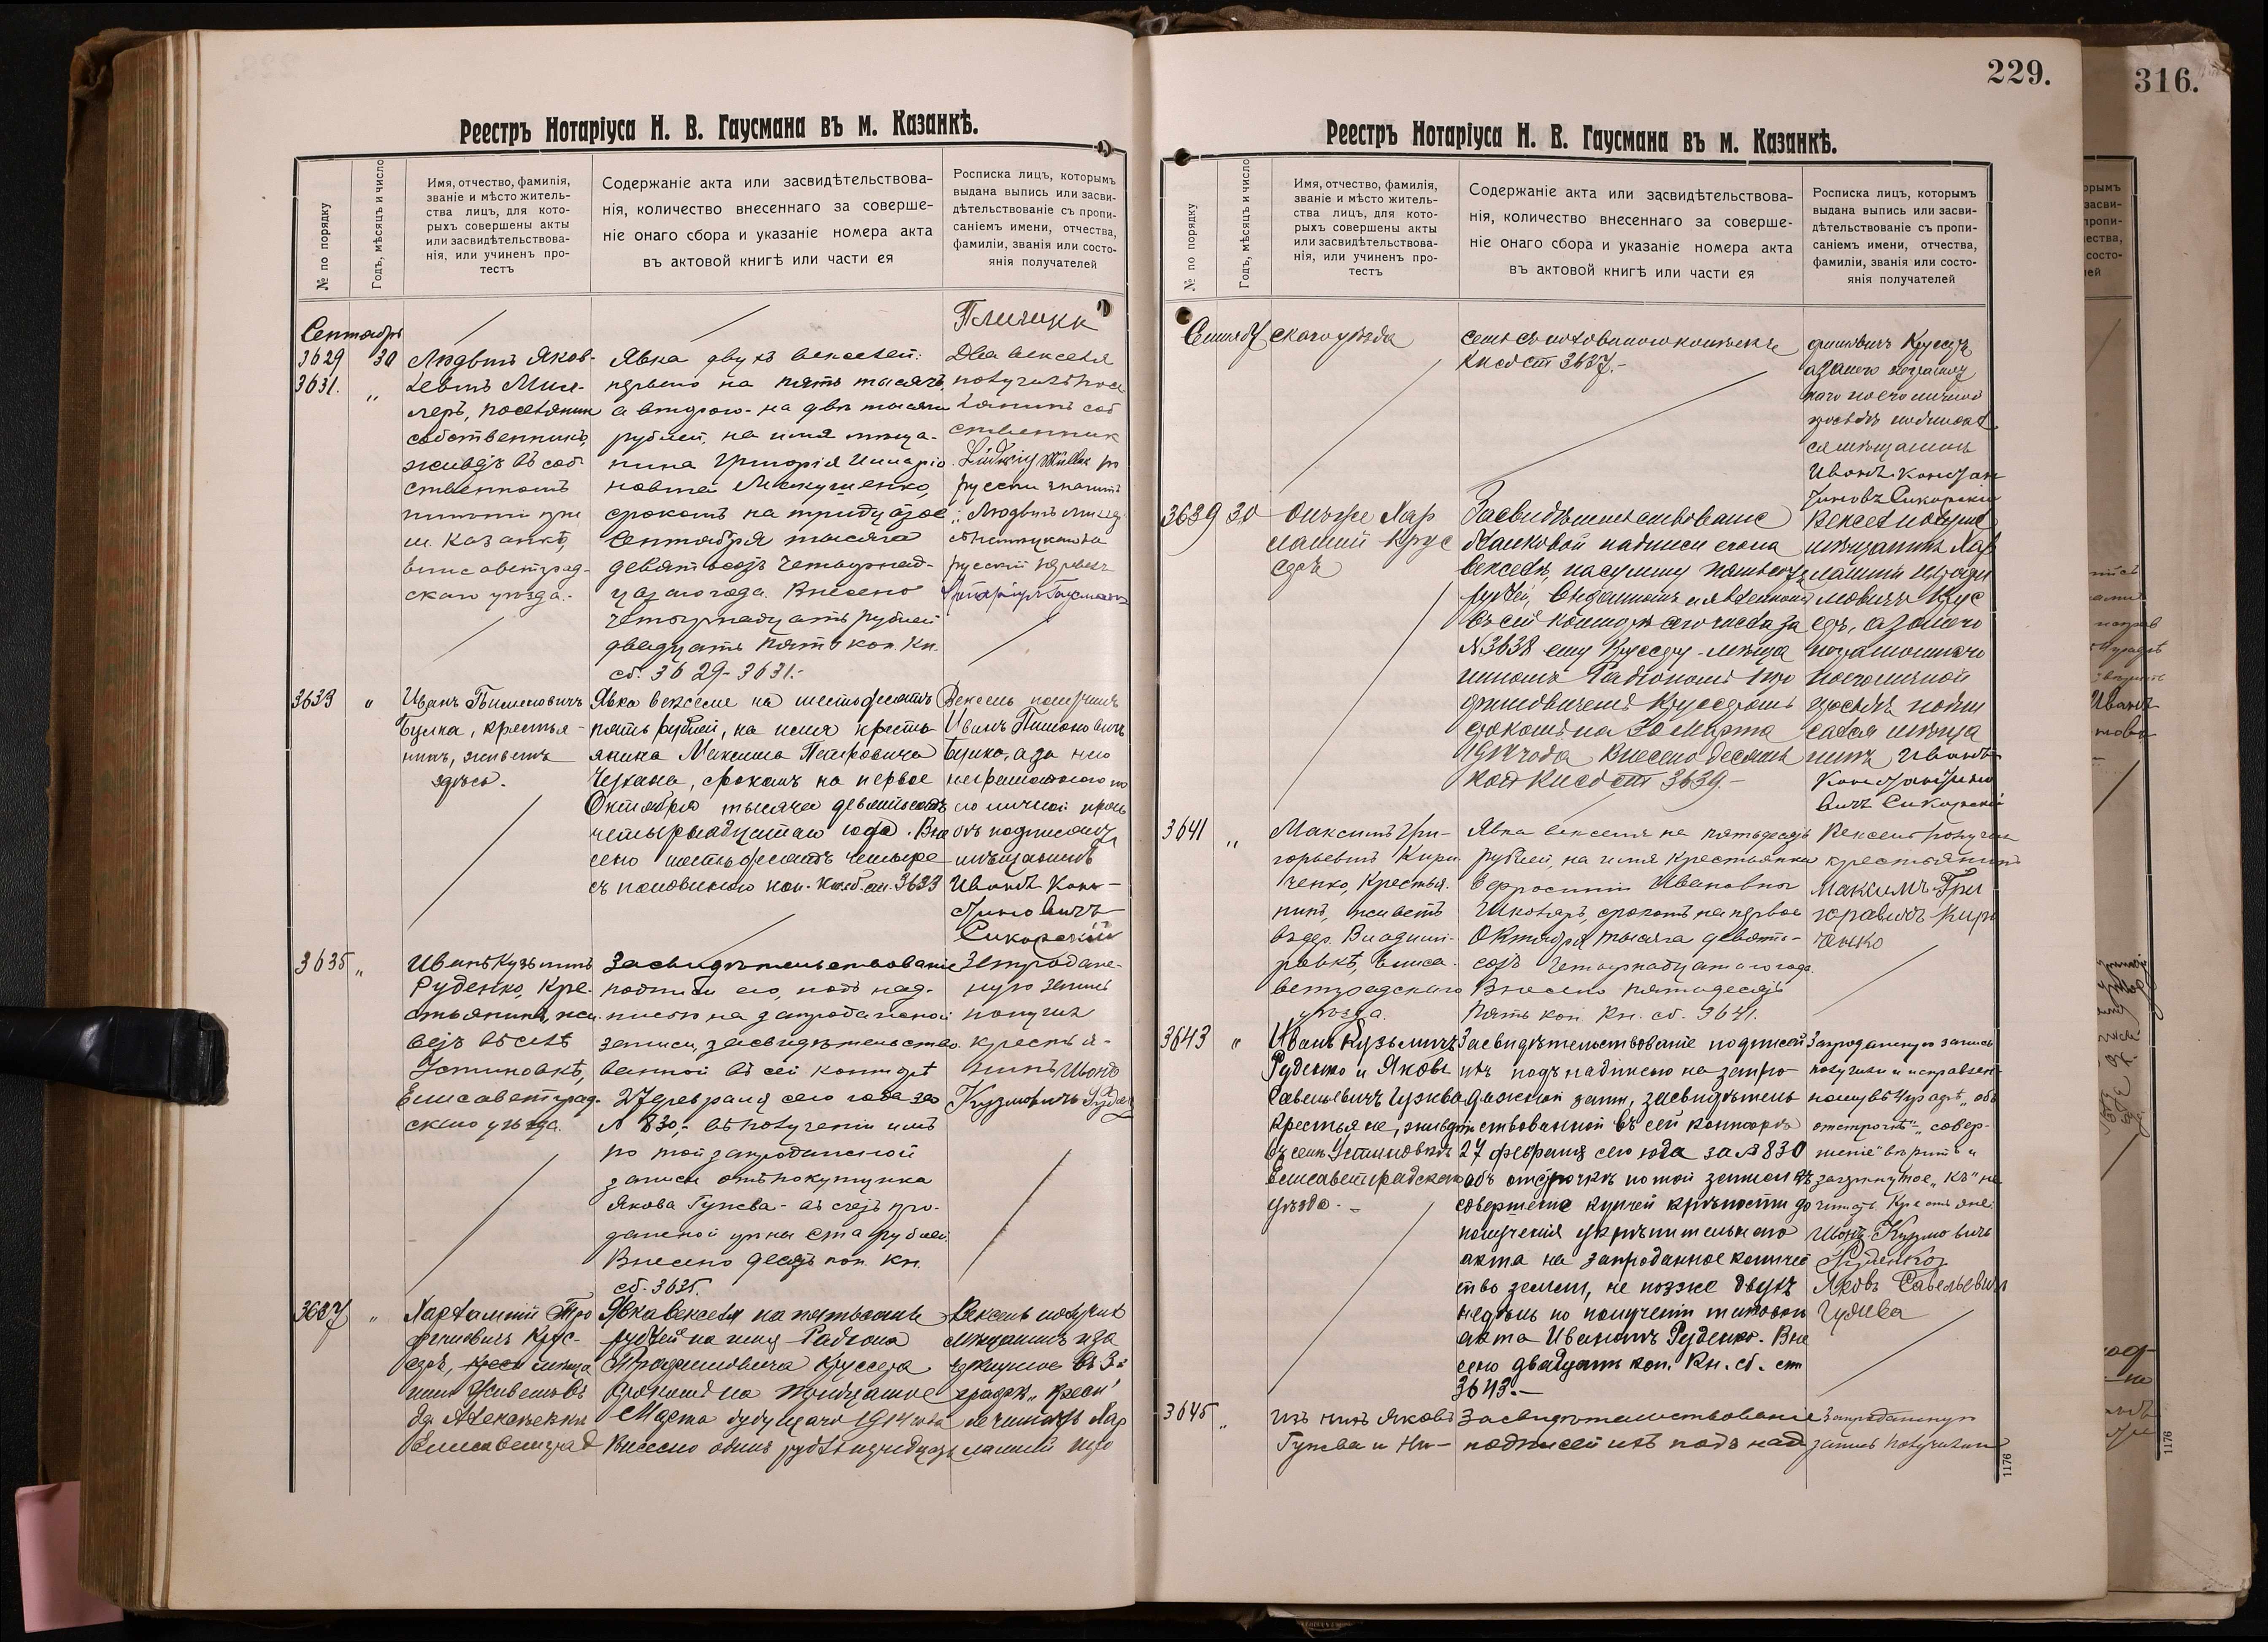 Реестръ Нотаріуса Н. В. Гаусмана въ м. Казанкѣ.
№ по порядку
Годъ, мѣсяцъ и число
Имя, отчество, фамилія,
званіе и мѣсто житель-
ства лицъ, для кото-
рыхъ совершены акты
или засвидѣтельствова-
нія, или учиненъ про-
тестъ
Содержаніе акта или засвидѣтельствова-
нія, количество внесеннаго за соверше-
ніе онаго сбора и указаніе номера акта
въ актовой книгѣ или части ея
Росписка лицъ, которымъ
выдана выпись или засви-
дѣтельствованіе съ пропи-
саніемъ имени, отчества,
фамиліи, званія или состо-
янія получателей
Сентябрь
3629 30
3631. „
Людвигъ Яков-
левичъ Мил-
леръ, поселянинъ
собственникъ,
живетъ въ соб-
ственномъ
имѣніи при
м. Казанкѣ,
Елисаветград-
скаго уѣзда.
Явка двухъ векселей:
перваго на пять тысячъ,
а второго - на двѣ тысячи
рублей, на имя мѣща-
нина Григорія Илларіо-
новича
срокомъ на тридцатое
Сентября тысяча
девятьсотъ четырнад-
цатаго года. Внесено
четырнадцать рублей
двадцать пять коп. Кн.
сб. 3629-3631.-
Два векселя
получилъ посе
лянинъ соб
ственник
Ludwig Müller по
русски значитъ
„Людвигъ Миллер
Нотаріусъ Гаусманъ
3633 „
Иванъ Пименовичъ
Булка, крестья-
нинъ, живетъ
здѣсь.
Явка векселя на шестьдесятъ
пять рублей, на имя кресть-
янина Максима Петровича
срокомъ на первое
Октября тысяча девятьсотъ
четырнадцатаго года. Вне
сено шестьдесятъ четыре
съ половиною коп. Кн. сб. ст. 3633
Вексель получилъ
Иванъ Пимоновичъ
Булка, а за него
неграмотного по
его личной прось
бѣ подписался
мѣщанинъ
Иванъ Конс-
тиновичъ
Сикорскій
3635 „
Иванъ Кузьмичъ
Руденко, кре-
стьянинъ, жи-
ветъ въ селѣ
Устиновкѣ,
Елисаветград-
скаго уѣзда.
Засвидѣтельствованіе
подписи его, подъ над-
писью на запроданной
записи, засвидѣтельство-
ванной въ сей конторѣ
27 февраля сего года за
№ 830,- въ полученіи имъ
по той запроданной
записи отъ покупщика
Якова Гужева - въ счетъ про-
данной цѣны ста рублей
Внесено десять коп. Кн.
сб. 3635.
Запродан-
ную запись
получилъ
крестья-
нинъ Иванъ
Кузмовичъ Руден
3637 „
Харлампій Тро
фимовичъ Крус-
сдъ, мѣща
нинъ Живетъ въ
др. Алексѣевкѣ
Елисаветград
Явка векселя на пятьсотъ
рублей на имя Радіона
Трофимовича Круссда
срокомъ на тридцатое
Марта будущаго 1914 года
Внесено одинъ рубль тридцать
Вексель получилъ
мѣщанинъ и за
черкнутое въ 3й
графѣ „крест“
не читать Хар
лампій Тро
229.
Реестръ Нотаріуса Н. В. Гаусмана въ м. Казанкѣ.
№ по порядку
Годъ, мѣсяцъ и число
Имя, отчество, фамилія,
званіе и мѣсто житель-
ства лицъ, для кото-
рыхъ совершены акты
или засвидѣтельствова-
нія, или учиненъ про-
тестъ
Содержаніе акта или засвидѣтельствова-
нія, количество внесеннаго за соверше-
ніе онаго сбора и указаніе номера акта
въ актовой книгѣ или части ея
Росписка лицъ, которымъ
выдана выпись или засви-
дѣтельствованіе съ пропи-
саніемъ имени, отчества,
фамиліи, званія или состо-
янія получателей
скаго уѣзда
семь съ половиною копѣекъ
Кн сб ст 3637.-
фимовичъ Круссдъ
а за него неграмот
наго по его личной
просьбѣ подписал
ся мѣщанинъ
Иванъ Констан
тиновъ Сикорскій
3639 30
Онъ же Хар
лампій Крус
сдъ
Засвидѣтельствованіе
бланковой надписи его на
векселѣ, на сумму пятьсотъ
рублей, выданномъ и явленномъ
въ сей конторѣ сего числа за
№ 3638 ему Круссду - мѣща
ниномъ Радіономъ Тро
фимовичемъ Круссдомъ
срокомъ на 30 Марта
1914 года Внесено десять
коп Кн сб ст 3639.-
Вексель получилъ
мѣщанинъ Хар
лампій Трофи
мовичъ Крус
сдъ, а за него
неграмотнаго
по его личной
просьбѣ подпи
сался мѣща
нинъ Иванъ
Константино
вичъ Сикорскій
3641 „
Максимъ Гри-
горьевичъ Кири
ченко, крестья-
нинъ, живетъ
въ др. Владими-
ровкѣ, Елиса-
ветградскаго
уѣзда.
Явка векселя на пятьдесятъ
рублей, на имя крестьянки
Евфросиніи Ивановны
Школяръ, срокомъ на первое
Октября тысяча девять-
сотъ четырнадцатаго года.
Внесено пятьдесятъ
пять коп. Кн. сб. 3641.
Вексель получилъ
крестьянинъ
Максимъ Гри
горовичъ Кири
ченко
3643 „
Иванъ Кузьмичъ
Руденко и Яковъ
Савельевичъ Гужва
крестьяне, живутъ
въ селѣ Устиновкѣ
Елисаветградскаго
уѣзда. -
Засвидѣтельствованіе подписей
ихъ подъ надписью на запро-
данной запи, засвидѣтель
ствованной въ сей конторѣ
27 февраля сего года за № 830
объ отсрочкѣ по той записи
совершеніе купчей крѣпости до
полученія укрѣпительнаго
акта на запроданное количе
ство земли, не позже двухъ
недѣль по полученіи таковаго
акта Иваномъ Руденко. Вне
сено двадцать коп. Кн. сб. ст
3643.-
Запроданную запись
получили и исправлен-
ному въ 4 графѣ „объ
отсрочкѣ“ „совер-
шеніе“ вѣрить и
зачеркнутое „къ“ не
читать Крестьяне:
Иванъ Кузмовичъ
Руденко
Яковъ Савельевичъ
Гужева
3645 „
Изъ нихъ Яковъ
Гужева и Ни-
Засвидѣтельствованіе
подписей ихъ подъ над
Запроданную
запись получили
1176
316.
1176